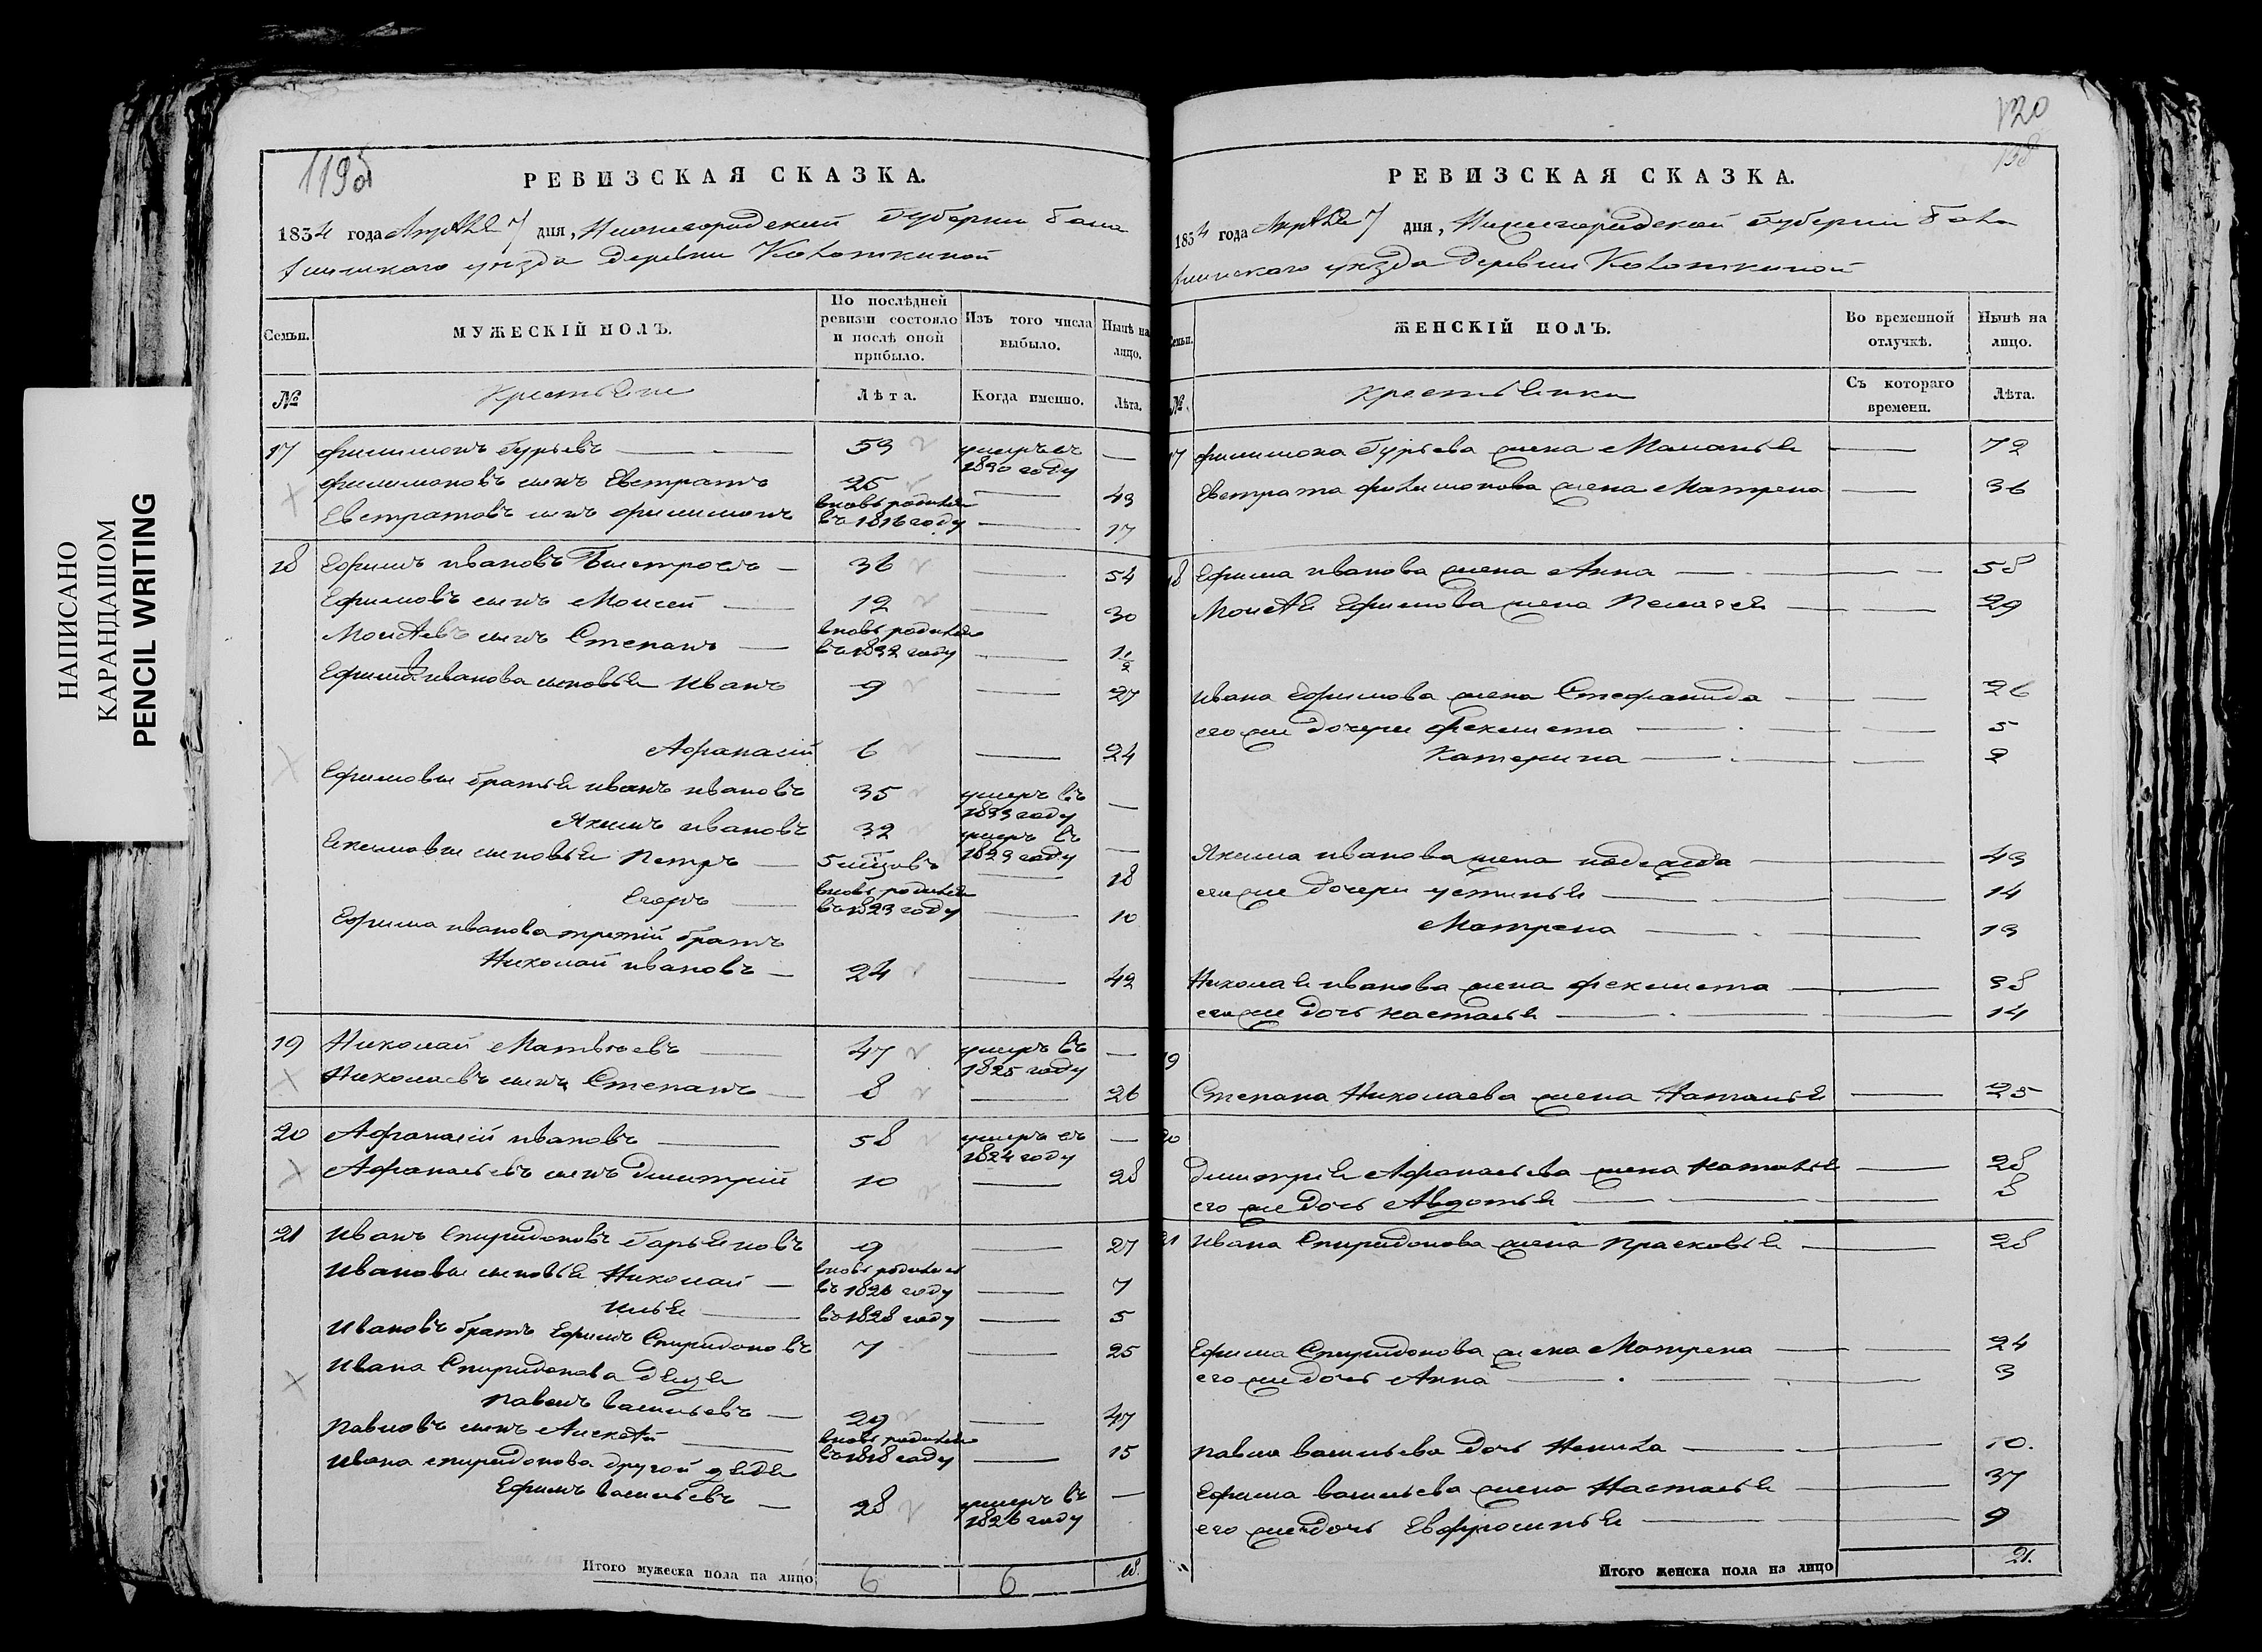 НАПИСАНО
КАРАНДАШОМ
PENCIL WRITING
119об
РЕВИЗСКАЯ СКАЗКА.
1834 года Апреля 7 дня, Нижегородской Губернии Бала
хнинскаго уезда деревни Колоткиной
Семьи.
МУЖЕСКІЙ ПОЛЪ.
По послѣдней ревизіи состояло и послѣ оной прибыло.
Изъ того числа выбыло.
Нынѣ на лицо.
№
Крестьяне
Лѣта.
Когда именно.
Лѣта.
17 Филимонъ Гурьевъ 53 умеръ въ 1830 году
Филимоновъ сынъ Евстратъ 25 43
Евстратовъ сынъ Филимонъ вновь родился въ 1816 году 17
18 Ефимъ Ивановъ Быстровъ 36 54
Ефимовъ сынъ Моисей 12 30
Моисеевъ сынъ Степанъ вновь родился въ 1832 году 1 1/2
Ефима Иванова сыновья Иванъ 9 27
Афанасій 6 24
Ефимовы братья Иванъ Ивановъ 35 умеръ въ 1833 году
Якимъ Ивановъ 32 умеръ въ 1829 году
Екимовы сыновья Петръ 18
Егоръ вновь родился въ 1823 году 10
Ефима Иванова третій братъ
Николай Ивановъ 24 42
19 Николай Матвеевъ 47 умеръ въ 1825 году
Николаевъ сынъ Степанъ 8 26
20 Афанасій Ивановъ 58 умеръ въ 1824 году
Афанасьевъ сынъ Дмитрій 10 28
21 Иванъ Спиридоновъ 9 27
Ивановы сыновья Николай вновь родились въ 1826 году 7
Илья въ 1828 году 5
Ивановъ братъ Ефимъ Спиридоновъ 7 25
Ивана Спиридонова дядя
Павелъ Васильевъ 29 47
Павловъ сынъ Алексей вновь родился въ 1818 году 15
Ивана Спиридонова другой дядя
Ефимъ Васильевъ 28 умеръ въ 1826 году
Итого мужеска пола на лицо 6 6 18.
120
138
РЕВИЗСКАЯ СКАЗКА.
1834 года Апреля 7 дня, Нижегородской Губернии Бала
хнинскаго уезда деревни Колоткиной
Семьи.
ЖЕНСКІЙ ПОЛЪ.
Во временной отлучкѣ.
Нынѣ на лицо.
№.
Крестьянки
Съ котораго времени.
Лѣта.
17 Филимона Гурьева жена Маланья 72
Евстрата Филимонова жена Матрена 36
18 Ефима Иванова жена Анна 58
Моисея Ефимова жена Пелагея 29
Ивана Ефимова жена Стефанида 26
его же дочери Феклиста 5
Катерина 2
Якима Иванова жена Надежда 43
его же дочери Устинья 14
Матрена 13
Николая Иванова жена Феклиста 38
его же дочь Настасья 14
19
Степана Николаева жена Наталья 25
20
Дмитрия Афанасьева жена Наталья 28
его же дочь Авдотья 8
21 Ивана Спиридонова жена Прасковья 28
Ефима Спиридонова жена Матрена 24
его же дочь Анна 3
Павла Васильева дочь Ненила 10.
Ефима Васильева жена Настасья 37
его же дочь Евфросинья 9
Итого женска пола на лицо 21.